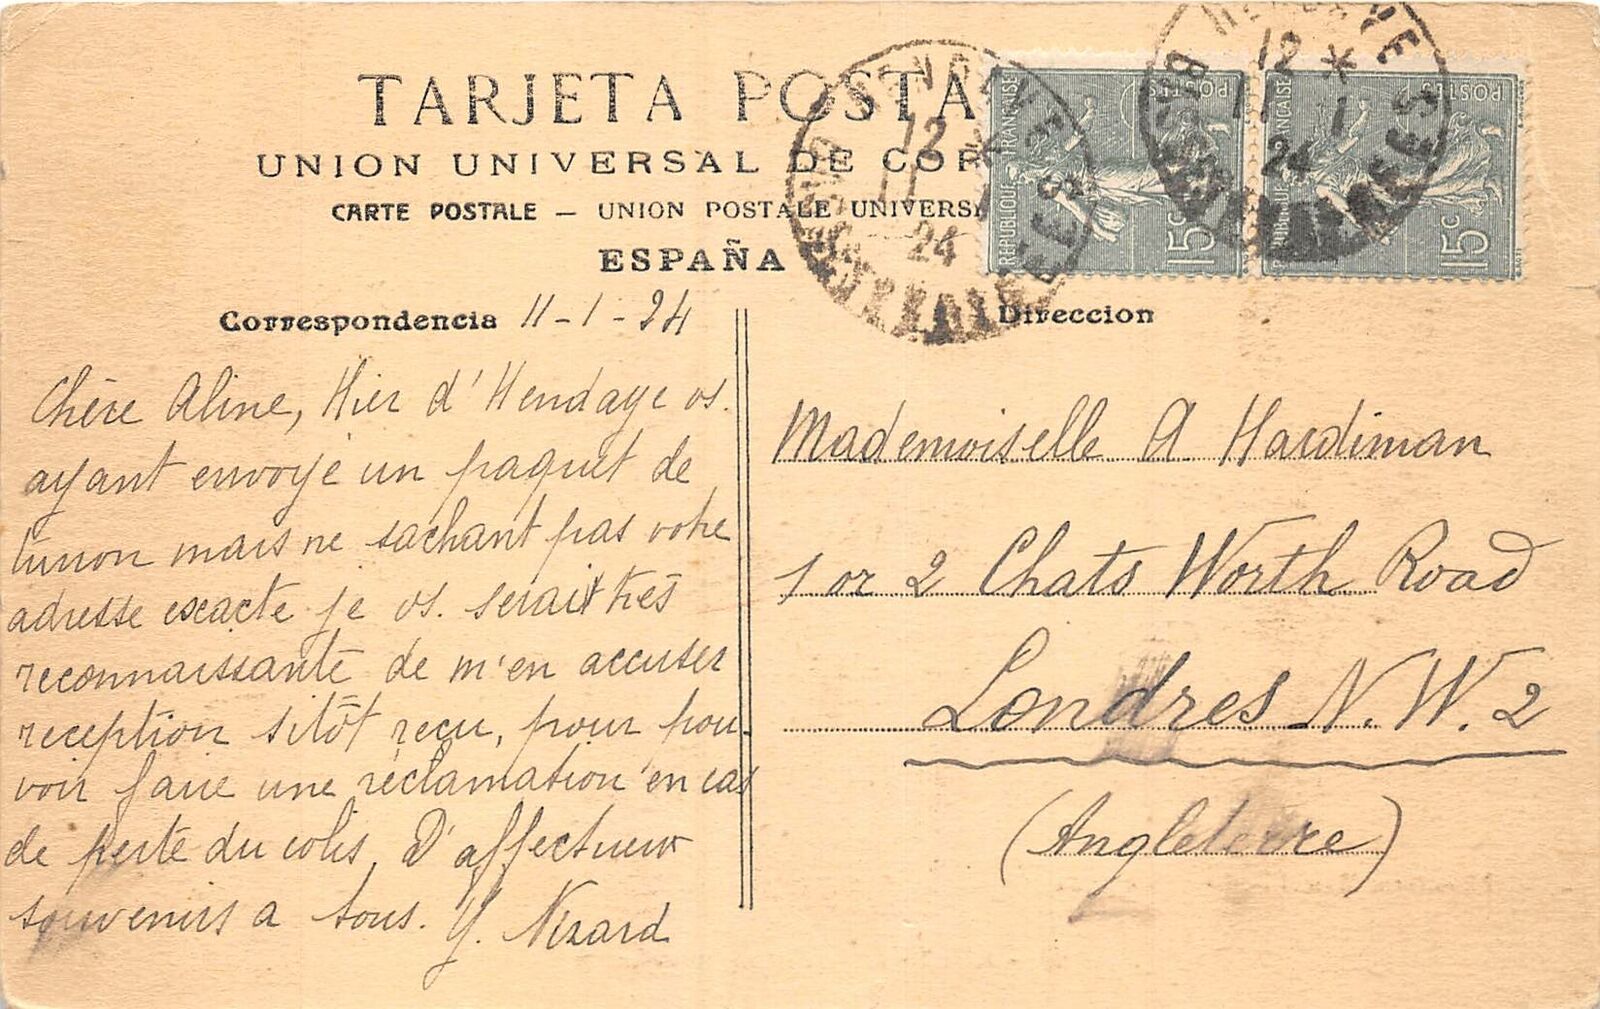 TARJETA POSTA
UNION UNIVERSAL DE COR
CARTE POSTALE – UNION POSTALE UNIVERS
ESPAÑA
Correspondencia 11-1-24
Chère Aline, Hier d'Hendaye vs.
ayant envoyé un paquet de
mais ne sachant pas votre
adresse exacte je vs. serait très
reconnaissante de m'en accuser
reception sitôt reçu, pour pou-
voir faire une réclamation en cas
de perte du colis. D'affectueux
souvenirs a tous. Y. Nizard
Direccion
Mademoiselle A. Hardiman
1 or 2 Chats Worth Road
Londres N.W. 2
(Angleterre)
REPUBLIQUE FRANÇAISE
POSTES
15c
REPUBLIQUE FRANÇAISE
POSTES
15c
12 *
11 - 1
24
HENDAYE
12 *
11 - 1
24